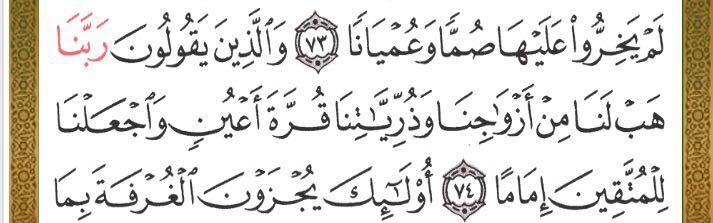 لَمۡ يَخِرُّواْ عَلَيۡهَا صُمّٗا وَعُمۡيَانٗا ٧٣ وَٱلَّذِينَ يَقُولُونَ رَبَّنَا
هَبۡ لَنَا مِنۡ أَزۡوَٰجِنَا وَذُرِّيَّٰتِنَا قُرَّةَ أَعۡيُنٖ وَٱجۡعَلۡنَا
لِلۡمُتَّقِينَ إِمَامًا ٧٤ أُوْلَٰٓئِكَ يُجۡزَوۡنَ ٱلۡغُرۡفَةَ بِمَا